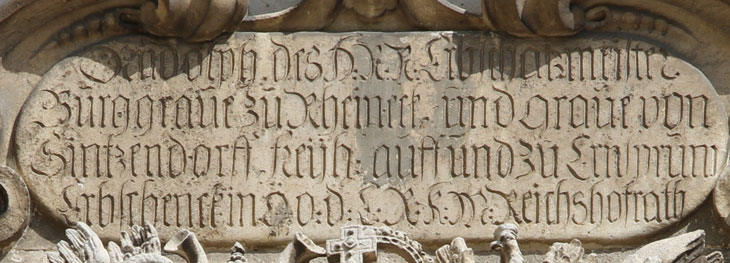 Rudolph. des H. R. R. Erbschatzmeister
Burggraue zu Rheineck und Graue von
Sintzendorff freÿh. auff und zu Ernsprüm
Erbschenck in Ö. o. d. E. R. K. M. Reichshofrath